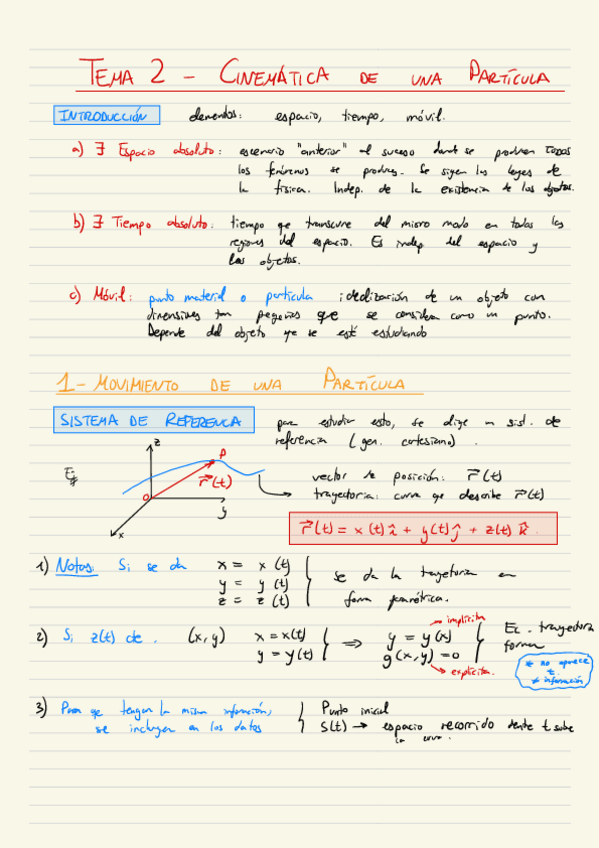 TEMA 2 - CINEMÁTICA DE UNA PARTÍCULA
INTRODUCCIÓN elementos: espacio, tiempo, móvil.
a) ∃ Espacio absoluto: escenario "anterior" al suceso donde se producen todos
los fenómenos se produces. Se siguen las leyes de
la física. Indep. de la existencia de los objetos.
b) ∃ Tiempo absoluto: tiempo que transcurre del mismo modo en todas las
regiones del espacio. Es indep del espacio y
los objetos.
c) Móvil: punto material o partícula idealización de un objeto con
dimensiones tan pequeñas que se considera como un punto.
Depende del objeto que se esté estudiando
1- MOVIMIENTO DE UNA PARTÍCULA
SISTEMA DE REFERENCIA para estudiar esto, se elige un sist. de
referencia (gen. cartesiano).
Ej
z
P
r⃗(t)
O
y
x
vector de posición: r⃗(t)
trayectoria: curva que describe r⃗(t)
r⃗(t) = x(t) î + y(t) ĵ + z(t) k̂.
1) Notas: Si se da x = x(t)
y = y(t)
z = z(t)
se da la trayectoria en
forma paramétrica.
2) Si z(t) de. (x,y) x = x(t)
y = y(t)
⇒ y = y(x) → implícita
g(x,y) = 0 → explícita.
Ec. trayectoria
forma
* no aparece
t
≠ información
3) Para que tengan la misma información,
se incluyen en los datos
Punto inicial
S(t) → espacio recorrido dente t sobre
la curva.